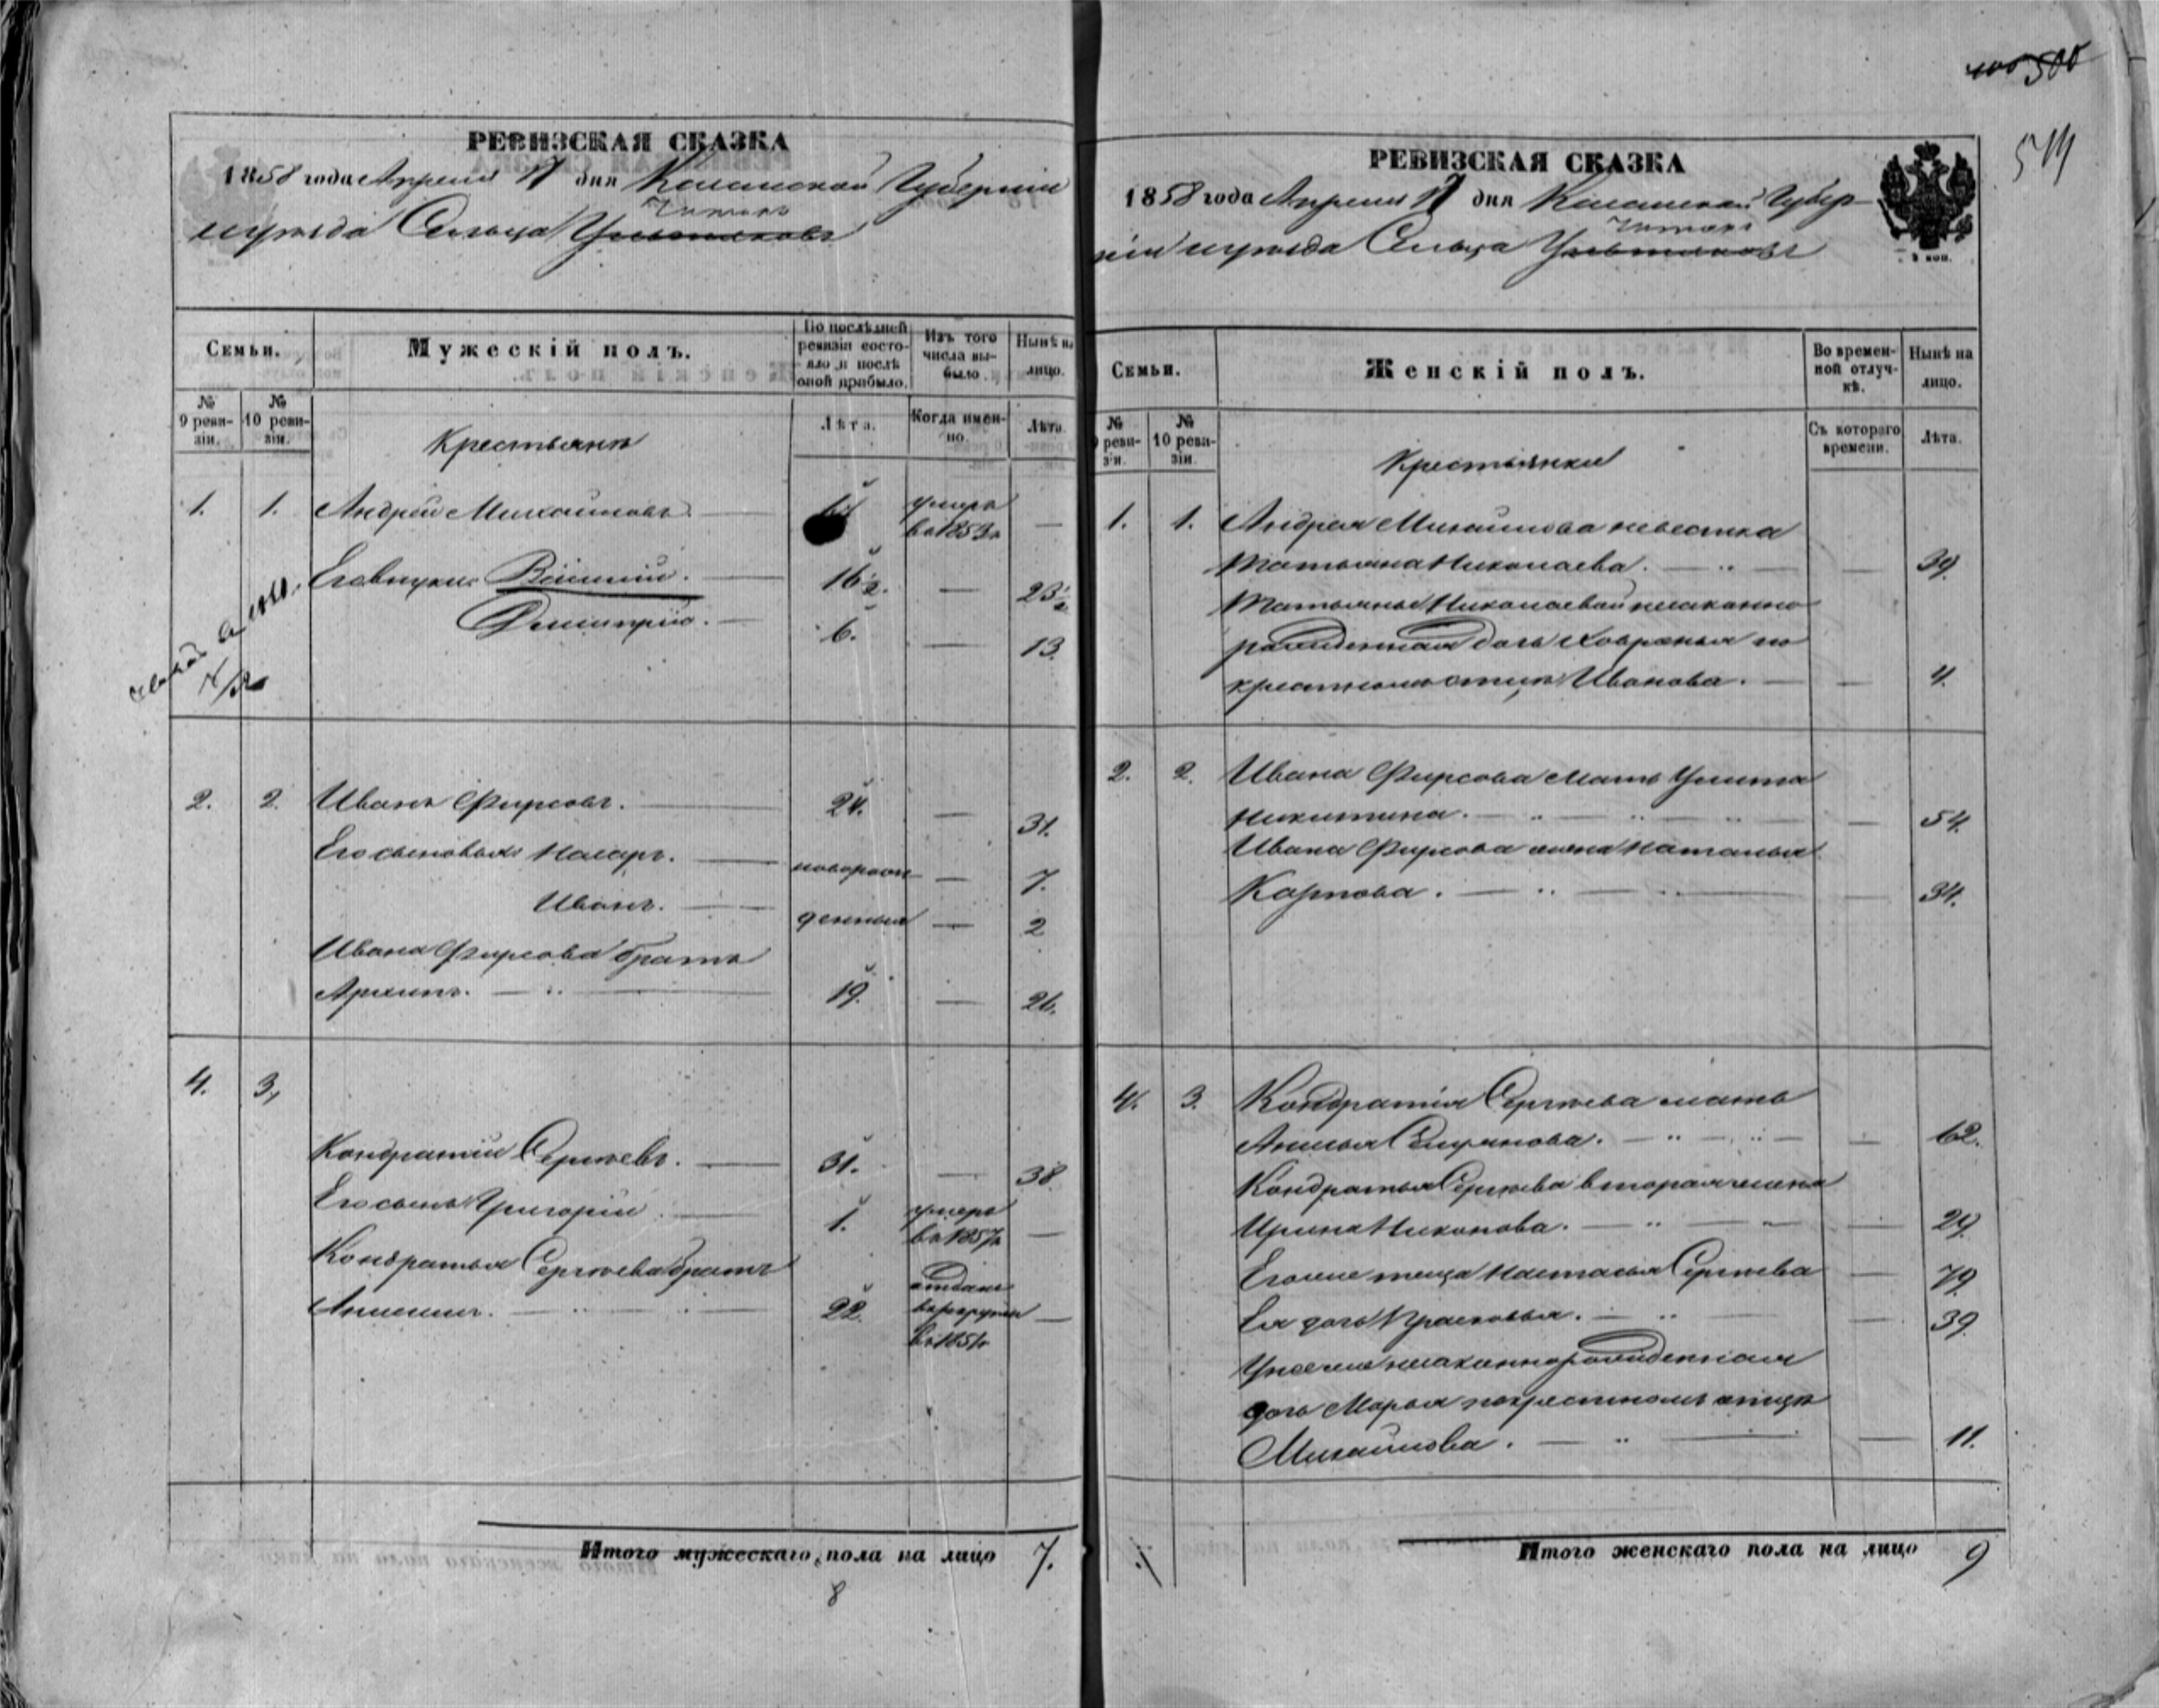 500
514
РЕВИЗСКАЯ СКАЗКА
1858 года Апреля 17 дня Казанской Губерніи
и уезда Сельца
Крестьяне
Семьи.
Мужескій полъ.
По послѣдней ревизіи состояло и послѣ оной прибыло.
Изъ того числа выбыло.
Нынѣ на лицо.
№ 9 ревизіи.
№ 10 ревизіи.
Лѣта.
Когда именно.
Лѣта.
1. 1. Андрей Михайловъ. умеръ
въ 1853 —
Его внуки Василій. 16½. — 23½
Дмитрій. 6. — 13.
2. 2. Иванъ Фирсовъ. 24. — 31.
Его сыновья Назаръ. новорож — 7.
Иванъ. денныя — 2
Ивана Фирсова братъ
Архипъ. 19. — 26.
4. 3.
Кондратій Сергѣевъ. 31. — 38.
Его сынъ Григорій. 1. умеръ
въ 1857 —
Кондратья Сергѣева братъ отданъ
22. въ рекруты —
въ 1851
Итого мужескаго пола на лицо 7.
8
РЕВИЗСКАЯ СКАЗКА
1858 года Апреля 17 дня Казанской Губер
ніи и уезда Сельца
Семьи.
Женскій полъ.
Во временной отлучкѣ.
Нынѣ на лицо.
№ 9 ревизіи.
№ 10 ревизіи.
Съ котораго времени.
Лѣта.
Крестьянки
1. 1. Андрея Михайлова невестка
Татьяна Николаева. — 39.
Татьяны Николаевой незаконно
рожденная дочь по
крестному отцу Иванова. — 4.
2. 2. Ивана Фирсова мать Улита
Никитина. — 54.
Ивана Фирсова жена Наталья
Карпова. — 34.
4. 3. Кондратія Сергѣева мать
— 62.
Кондратья Сергѣева вторая жена
Ирина Никонова. — 29.
Его же теща Настасья Сергѣева — 79.
Ея дочь Прасковья. — 39.
У нее же незаконнорожденная
дочь Марья по крестному отцу
Михайлова. — 11.
Итого женскаго пола на лицо 9